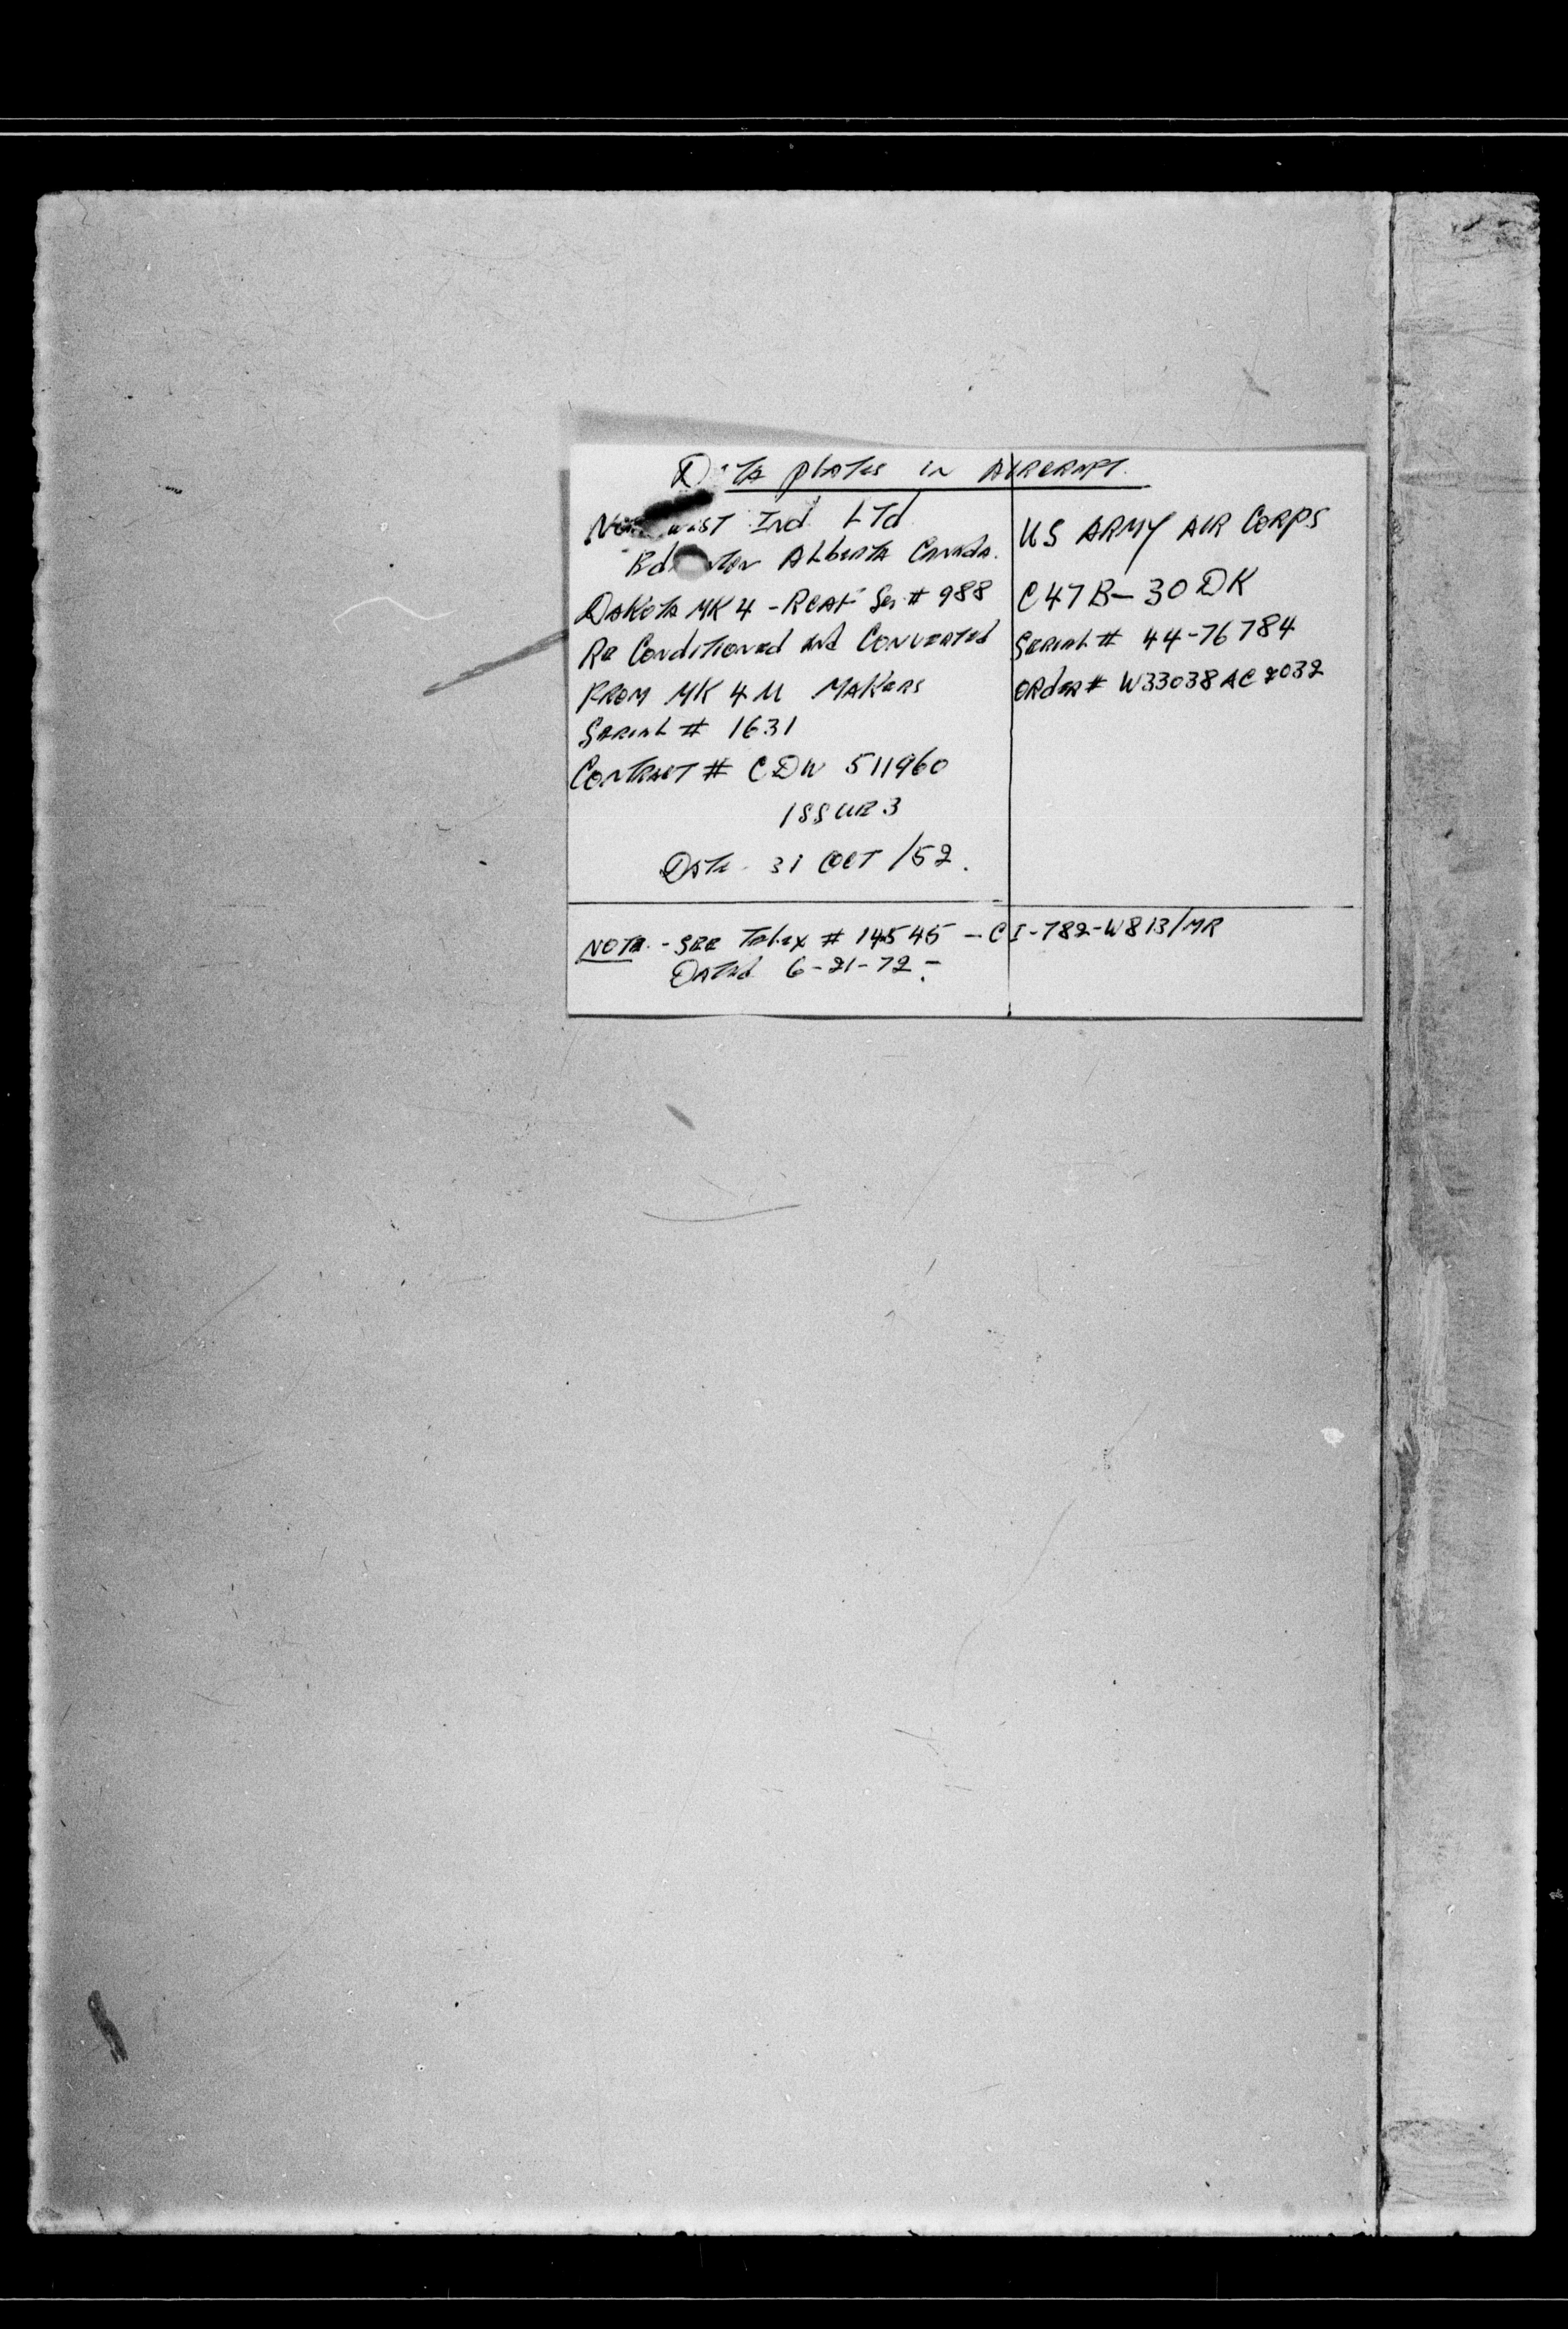 Data plates in AIRCRAFT.
Northwest Ind LTd
Edmonton ALberta Canada.
DAKOTA MK 4 - RCAF Ser # 988
Re Conditioned and Converted
FROM MK 4 M MAKers
Serial # 1631
Contract # CDW 511960
ISSUE 3
Date 31 OCT /52.
US ARMY AIR CORPS
C47B-30 DK
Serial # 44-76784
ORder # W33038AC2032
NOTE - SEE Telex # 14545 - CI-782-W813/MR
Dated 6-21-72.-